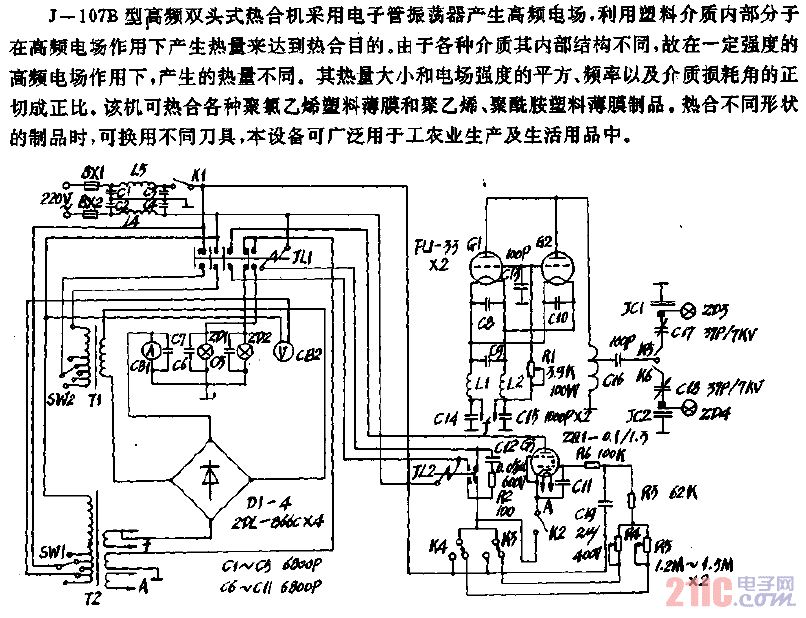 J—107B 型高频双头式热合机采用电子管振荡器产生高频电场，利用塑料介质内部分子
在高频电场作用下产生热量来达到热合目的。由于各种介质其内部结构不同，故在一定强度的
高频电场作用下，产生的热量不同。其热量大小和电场强度的平方、频率以及介质损耗角的正
切成正比。该机可热合各种聚氯乙烯塑料薄膜和聚乙烯、聚酰胺塑料薄膜制品。热合不同形状
的制品时，可换用不同刀具，本设备可广泛用于工农业生产及生活用品中。
BX1
L5
K1
C1
C3
220V
BX2
C2
C4
L4
JL1
FU-33
X2
G1
100P
G2
C13
C8
C10
C9
R1
3.9K
100W
L1
L2
C14
C15
1000PX2
JC1
ZD3
C17
39P/7KV
100P
K5
C16
K6
C18
39P/7KV
JC2
ZD4
A
CB1
C7
C6
ZD1
C5
ZD2
V
CB2
SW2
T1
D1-4
2DL-866CX4
SW1
T2
A
C1~C5 6800P
C6~C11 6800P
JL2
C12
600V
R2
100
G3
ZG1-0.1/1.3
R6 100K
C11
A
K2
C19
24μ
400V
R3 62K
R4
R5
1.2M~1.5M
X2
K4
K3
21IC电子网
.com